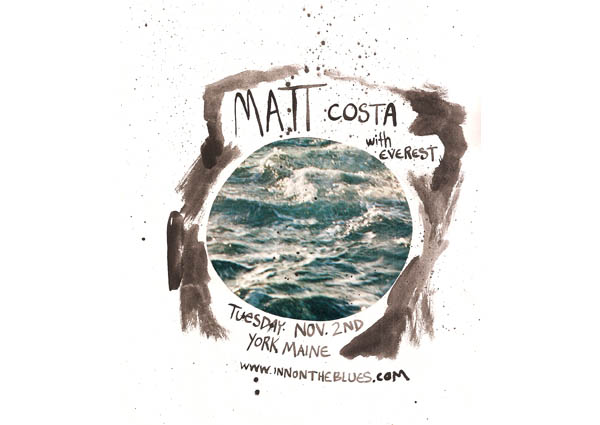 MATT COSTA
with
EVEREST
TUESDAY. NOV. 2ND
YORK MAINE
WWW.INNONTHEBLUES.COM